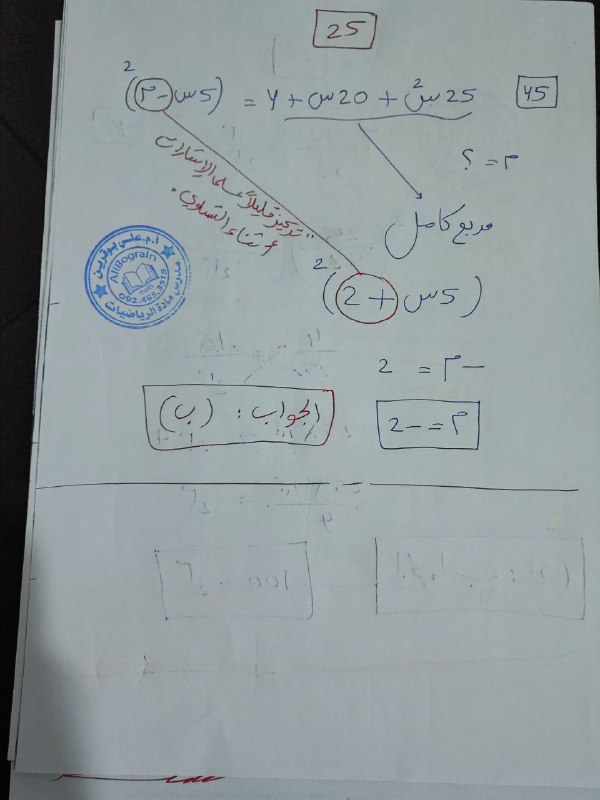 25
45
25س² + 20س + 4 = (5س - م)²
م = ؟
مربع كامل
"تركيز قليلاً على الإشارات
أثناء التساوي"
(5س + 2)²
أ.م.علي بوقرين
AliBograin
math
092.463.3515
مدرس مادة الرياضيات
-م = 2
م = -2
الجواب : (ب)